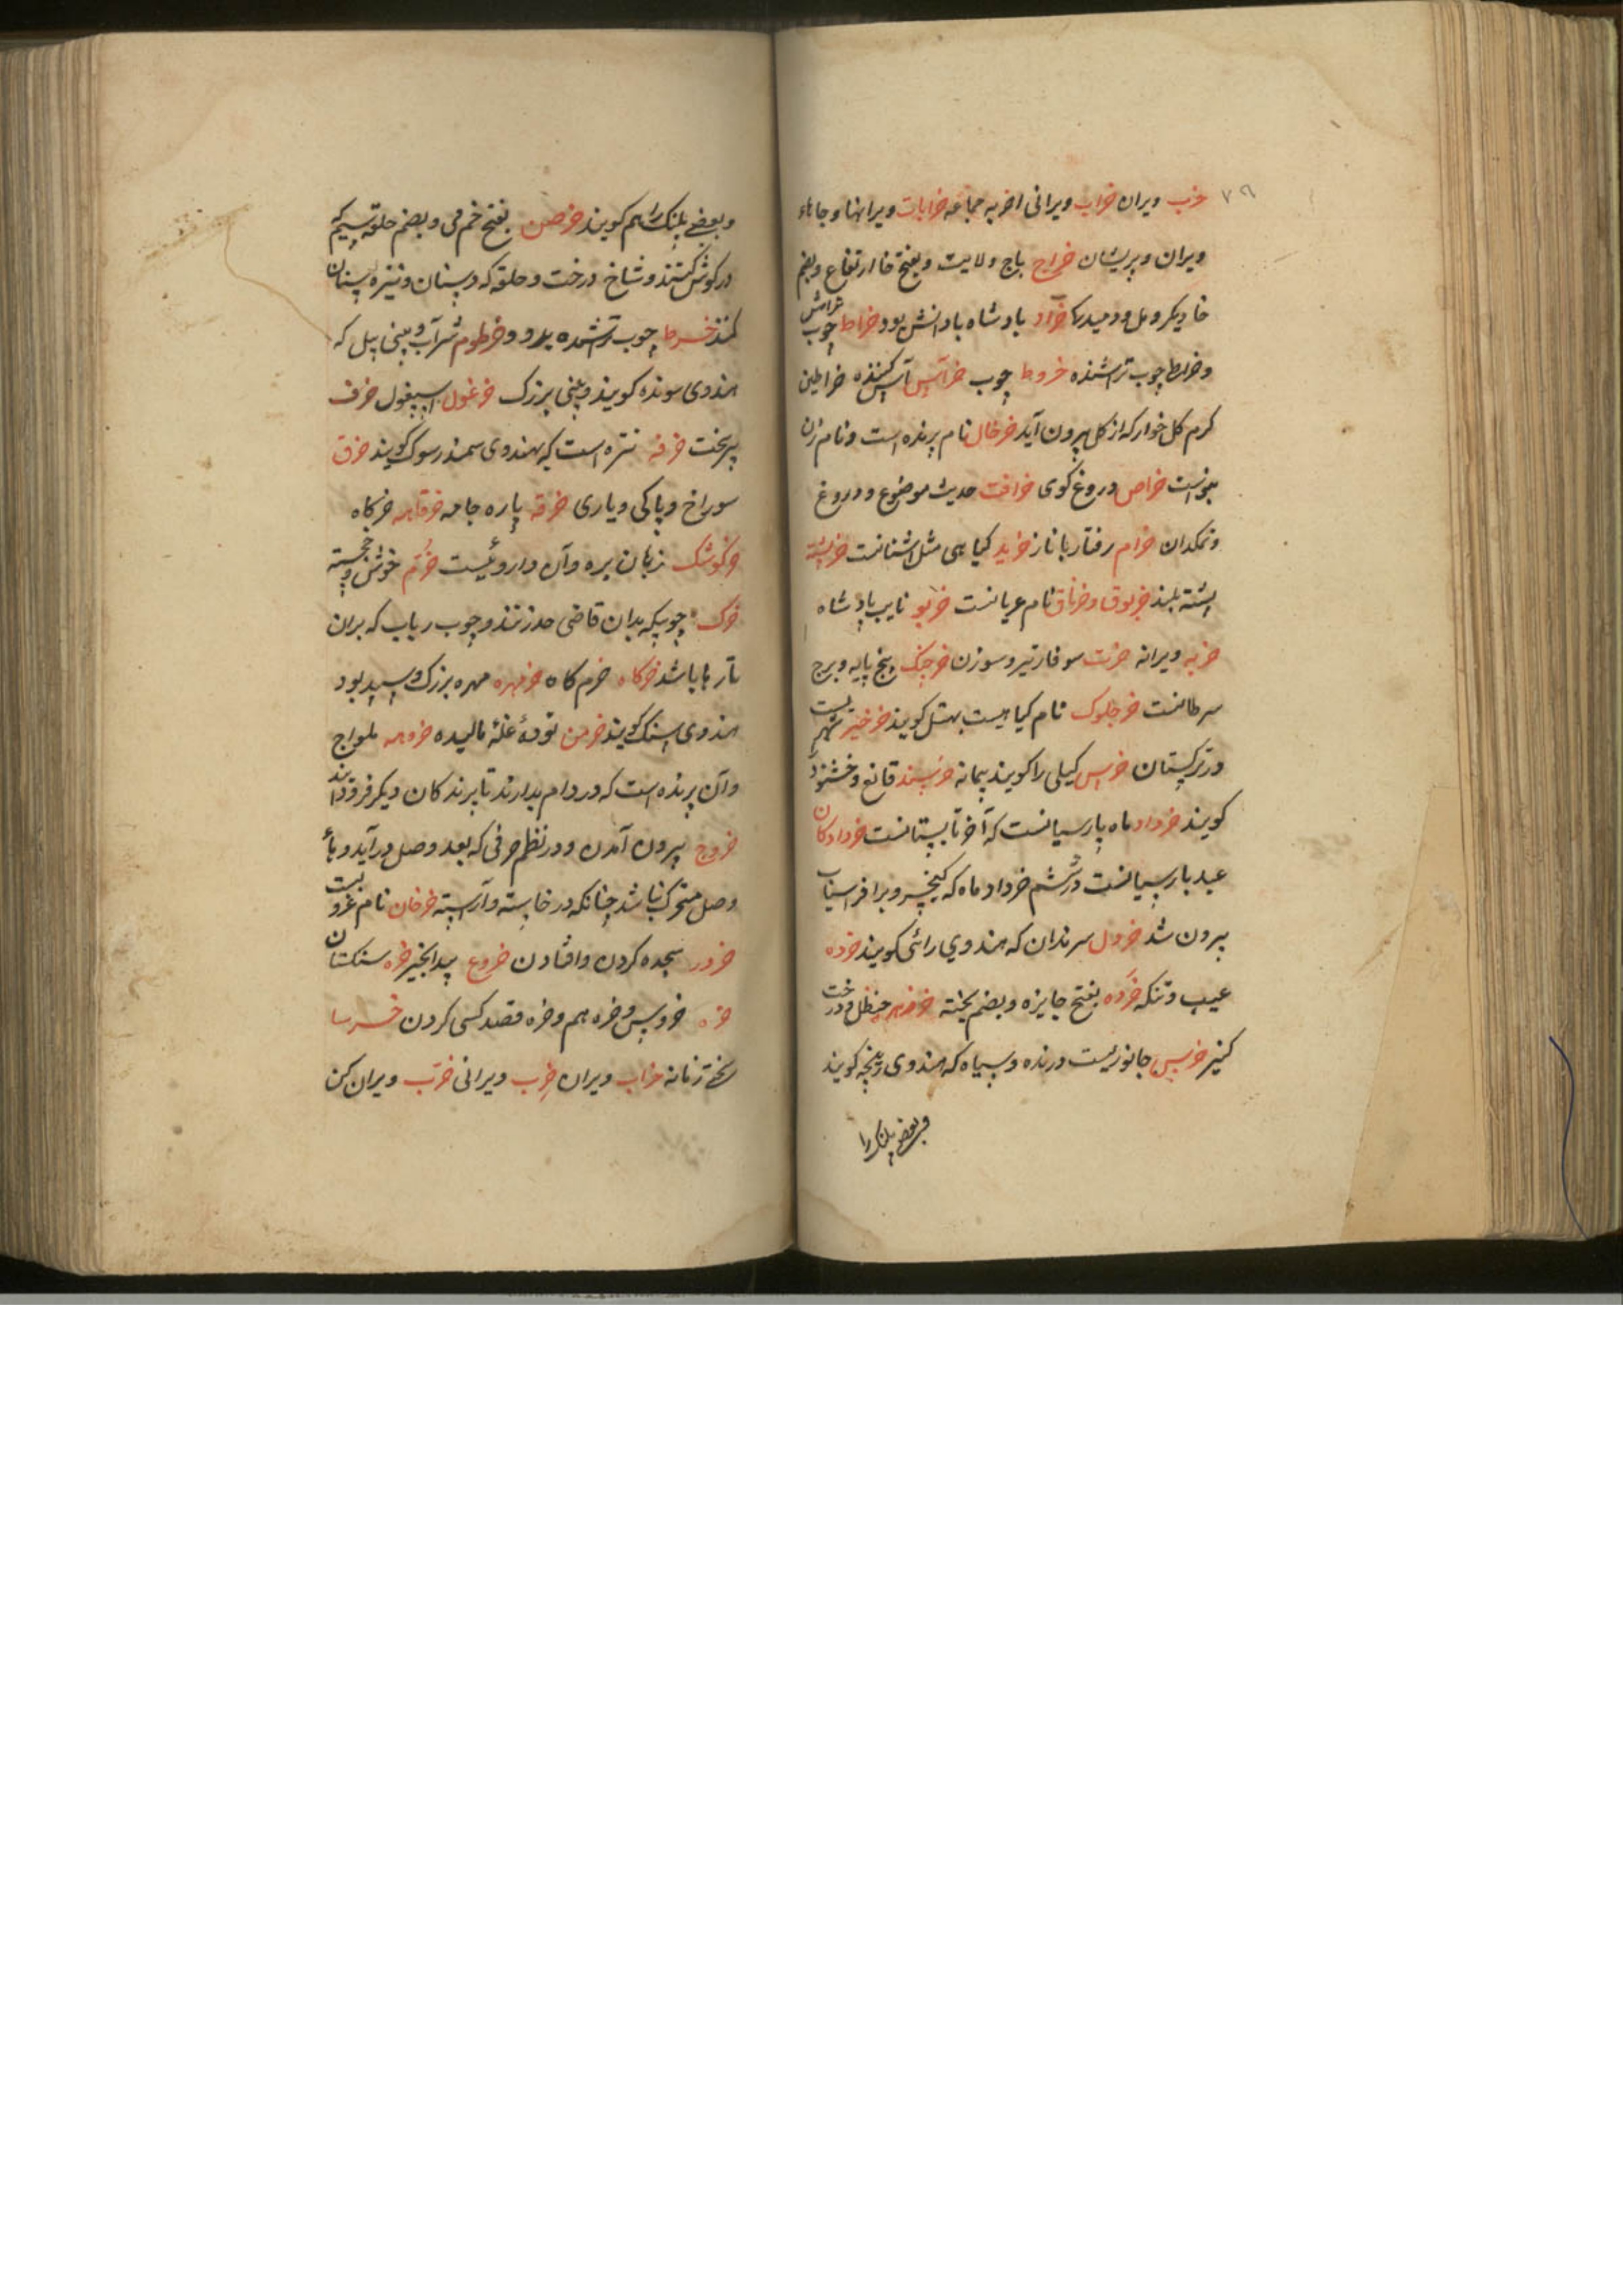 ۷۹
خرب ویران خراب ویرانی اخربه جماعه خرابات ویرانها و جاهاء
ویران و پریشان خراج باج ولایت و بفتح خا ارتفاع و بضم
خا دیکر و مل و دمیدکی خراد بادشاه با دانش بود خراط چوب تراش
و خراط چوب تراشنده خروط چوب خرآس آس کننده خراطین
کرم کل خوار که از کل بیرون آید خرخال نام پرنده است و نام زن
خراص دروغ کوی خرافت حدیث موضوع و دروغ
و نمکدان خرام رفتار با ناز خرید کیاهی مثل اشنانست خرپشته
پشته بلند خربوق و خرناق نام عربانست خربو نایب بادشاه
خربه ویرانه خرت سوفار تیر و سوزن خرچنک پنج پایه و برج
سرطانست خرجلوک نام کیاهیست بهتل کویند خرخیز شهریست
در ترکستان خرس کیلی را کویند پیمانه خرسند قانع و خشنود را
کویند خرداد ماه پارسیانست که آخر تابستانست خردادکان
عید پارسیانست در ششم خرداد ماه که کیخسرو بر افراسیاب
بیرون شد خردل سرندان که هندوی رائی کویند خرده
عیب و تنکه خرده بفتح جایزه و بضم پخته خرزهره حنظل و درخت
کنیر خرس جانوریست درنده و سیاه که هندوی ریچه کویند
و بعضی پلنک را
و بعضی پلنک را هم کویند خرص بفتح خم می و بضم حلقه سیم که
در کوش کنند و شاخ درخت و حلقه که در سنان و نیزه سنان
کنند خرط چوب تراشیده بدو و خرطوم شراب و بینی پیل که
هندوی سونده کویند و بینی بزرک خرغول اسپغول خرف
پیر سخت خرفه تره است که بهندوی سمندر سوک کویند خرق
سوراخ و پاکی و یاری خرقه پاره جامه خرقاهه خرکاه
خرکوشک زبان بره و آن داروئیست خرم خوش و خجسته
خرک چوبیکه بدان قاضی حد زنند و چوب رباب که بران
تارها باشد خرکاه خرم کاه خرمهره مهره بزرک و سپید بود
هندوی سنک کویند خرمن توده غله مالیده خروهه ملواج
و آن پرنده است که در دام بدارند تا پرندکان دیکر فرود آیند
خروج بیرون آمدن و در نظم حرفی که بعد وصل در آید و ماء
وصل متحرک باشد چنانکه در خاسته و آراسته خرخان نام غزو است
خرور سجده کردن و افتادن خروع بید انجیر خره سنکستان
خره خروس و خره هم و خره قصد کسی کردن خرسا
سختی زمانه خراب ویران خرب ویرانی خرب ویران کن